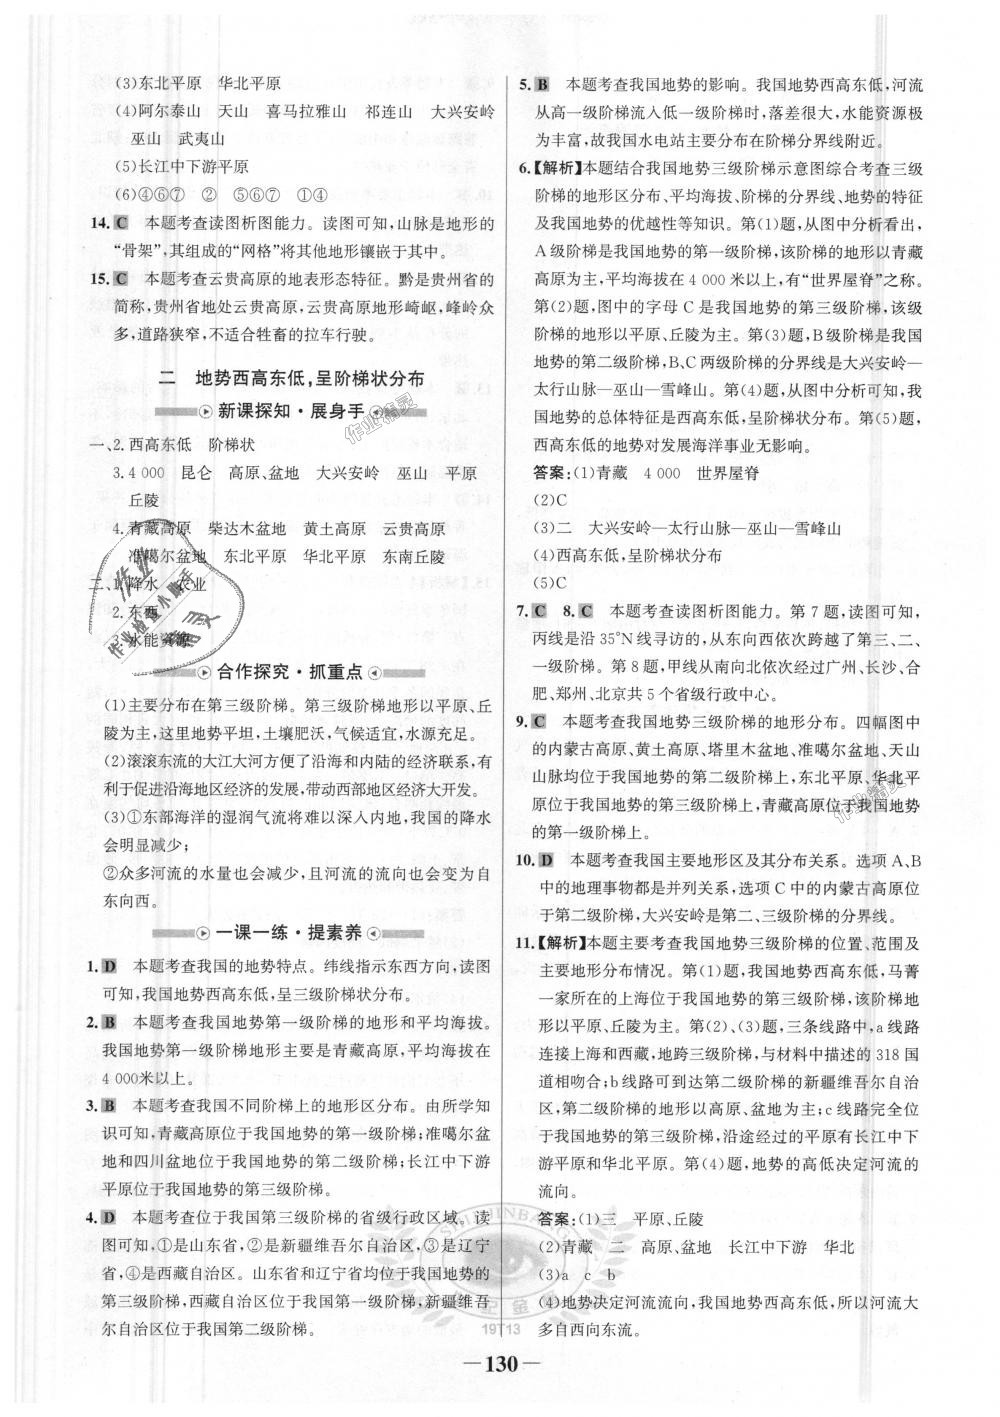 (3)东北平原　华北平原
(4)阿尔泰山　天山　喜马拉雅山　祁连山　大兴安岭
巫山　武夷山
(5)长江中下游平原
(6)④⑥⑦　②　⑤⑥⑦　①④
14. C　本题考查读图析图能力。读图可知,山脉是地形的
“骨架”,其组成的“网格”将其他地形镶嵌于其中。
15. C　本题考查云贵高原的地表形态特征。黔是贵州省的
简称,贵州省地处云贵高原,云贵高原地形崎岖,峰岭众
多,道路狭窄,不适合牲畜的拉车行驶。
二　地势西高东低,呈阶梯状分布
新课探知·展身手
一、2. 西高东低　阶梯状
3. 4 000　昆仑　高原、盆地　大兴安岭　巫山　平原
丘陵
4. 青藏高原　柴达木盆地　黄土高原　云贵高原
准噶尔盆地　东北平原　华北平原　东南丘陵
二、1. 降水　农业
2. 东西
3. 水能资源
合作探究·抓重点
(1)主要分布在第三级阶梯。第三级阶梯地形以平原、丘
陵为主,这里地势平坦,土壤肥沃,气候适宜,水源充足。
(2)滚滚东流的大江大河方便了沿海和内陆的经济联系,有
利于促进沿海地区经济的发展,带动西部地区经济大开发。
(3)①东部海洋的湿润气流将难以深入内地,我国的降水
会明显减少;
②众多河流的水量也会减少,且河流的流向也会变为自
东向西。
一课一练·提素养
1. D　本题考查我国的地势特点。纬线指示东西方向,读图
可知,我国地势西高东低,呈三级阶梯状分布。
2. B　本题考查我国地势第一级阶梯的地形和平均海拔。
我国地势第一级阶梯地形主要是青藏高原,平均海拔在
4 000米以上。
3. B　本题考查我国不同阶梯上的地形区分布。由所学知
识可知,青藏高原位于我国地势的第一级阶梯;准噶尔盆
地和四川盆地位于我国地势的第二级阶梯;长江中下游
平原位于我国地势的第三级阶梯。
4. D　本题考查位于我国第三级阶梯的省级行政区域。读
图可知,①是山东省,②是新疆维吾尔自治区,③是辽宁
省,④是西藏自治区。山东省和辽宁省均位于我国地势的
第三级阶梯,西藏自治区位于我国第一级阶梯,新疆维吾
尔自治区位于我国第二级阶梯。
5. B　本题考查我国地势的影响。我国地势西高东低,河流
从高一级阶梯流入低一级阶梯时,落差很大,水能资源极
为丰富,故我国水电站主要分布在阶梯分界线附近。
6.【解析】本题结合我国地势三级阶梯示意图综合考查三级
阶梯的地形区分布、平均海拔、阶梯的分界线、地势的特征
及我国地势的优越性等知识。第(1)题,从图中分析看出,
A级阶梯是我国地势的第一级阶梯,该阶梯的地形以青藏
高原为主,平均海拔在4 000米以上,有“世界屋脊”之称。
第(2)题,图中的字母C是我国地势的第三级阶梯,该级
阶梯的地形以平原、丘陵为主。第(3)题,B级阶梯是我国
地势的第二级阶梯,B、C两级阶梯的分界线是大兴安岭—
太行山脉—巫山—雪峰山。第(4)题,从图中分析可知,我
国地势的总体特征是西高东低,呈阶梯状分布。第(5)题,
西高东低的地势对发展海洋事业无影响。
答案:(1)青藏　4 000　世界屋脊
(2)C
(3)二　大兴安岭—太行山脉—巫山—雪峰山
(4)西高东低,呈阶梯状分布
(5)C
7. C　8. C　本题考查读图析图能力。第7题,读图可知,
丙线是沿35°N线寻访的,从东向西依次跨越了第三、二、
一级阶梯。第8题,甲线从南向北依次经过广州、长沙、合
肥、郑州、北京共5个省级行政中心。
9. C　本题考查我国地势三级阶梯的地形分布。四幅图中
的内蒙古高原、黄土高原、塔里木盆地、准噶尔盆地、天山
山脉均位于我国地势的第二级阶梯上,东北平原、华北平
原位于我国地势的第三级阶梯上,青藏高原位于我国地势
的第一级阶梯上。
10. D　本题考查我国主要地形区及其分布关系。选项A、B
中的地理事物都是并列关系,选项C中的内蒙古高原位
于第二级阶梯,大兴安岭是第二、三级阶梯的分界线。
11.【解析】本题主要考查我国地势三级阶梯的位置、范围及
主要地形分布情况。第(1)题,我国地势西高东低,马菁
一家所在的上海位于我国地势的第三级阶梯,该阶梯地
形以平原、丘陵为主。第(2)、(3)题,三条线路中,a线路
连接上海和西藏,地跨三级阶梯,与材料中描述的318国
道相吻合;b线路可到达第二级阶梯的新疆维吾尔自治
区,第二级阶梯的地形以高原、盆地为主;c线路完全位
于我国地势的第三级阶梯,沿途经过的平原有长江中下
游平原和华北平原。第(4)题,地势的高低决定河流的
流向。
答案:(1)三　平原、丘陵
(2)青藏　二　高原、盆地　长江中下游　华北
(3)a　c　b
(4)地势决定河流流向,我国地势西高东低,所以河流大
多自西向东流。
19T13
—130—
作业精灵
作业精灵
作业
作业检查小助手
精灵